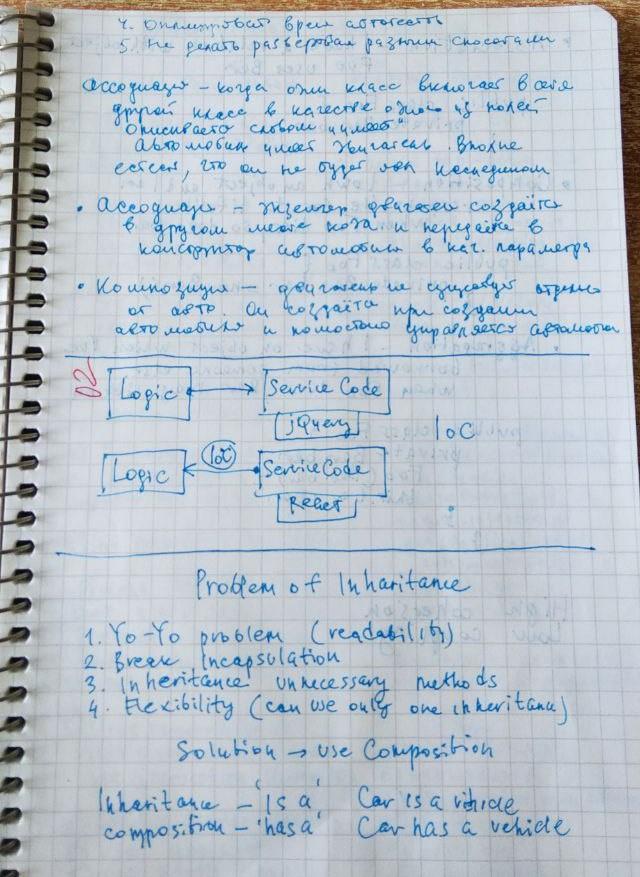 4. Оптимизировать время автотестов
5. Не делать развёртывая разными способами
Ассоциация – когда один класс включает в себя
другой класс в качестве одного из полей
Описывается словом "имеет"
Автомобиль имеет двигатель. Вполне
естеств, что он не будет наследником
• Ассоциация – экземпляр двигателя создаётся
в другом месте кода и передаётся в
конструктор автомобиля в кач. параметра
• Композиция – двигатель не существует отдельно
от авто. Он создаётся при создании
автомобиля и полностью управляется автомобилем
02
Logic
Service Code
jQuery
IoC
Logic
IoC
Service Code
React
Problem of Inharitance
1. Yo-Yo problem (readability)
2. Break Incapsulation
3. Inheritance unnecessary methods
4. Flexibility (can use only one inheritance)
Solution → use Composition
Inharitance – 'is a' Car is a vihicle
composition – 'has a' Car has a vehicle